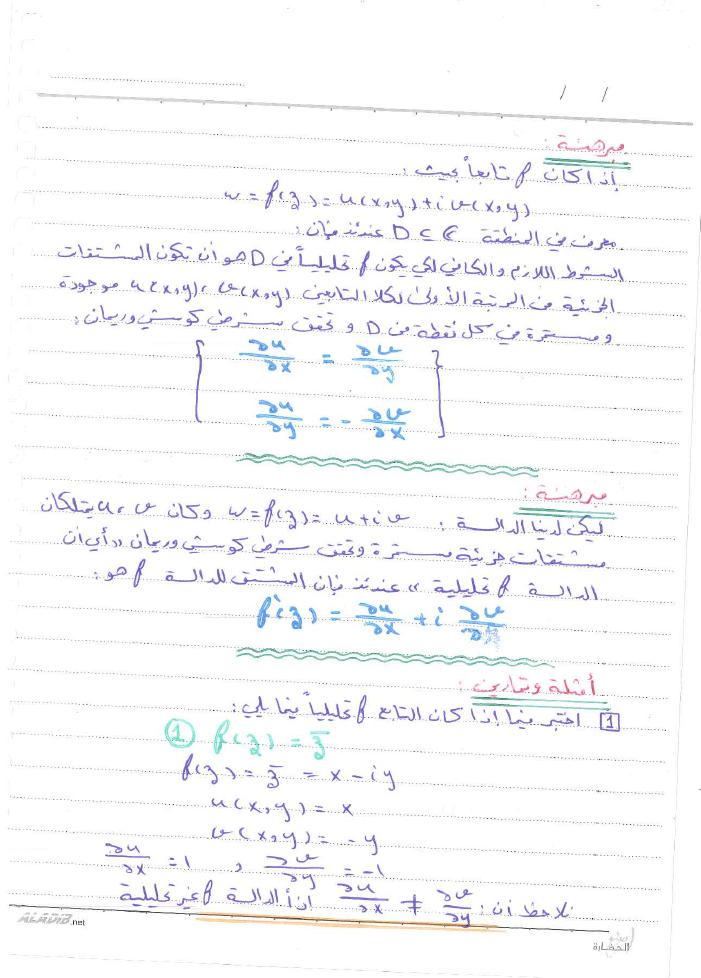 / /
مبرهنة :
إذا كان f تابعاً بحيث :
w = f(z) = u(x,y) + i v(x,y)
معرف في المنطقة D ⊆ C عندئذ فإن :
الشرط اللازم والكافي لكي يكون f تحليلياً في D هو أن تكون المشتقات
الجزئية من المرتبة الأولى لكلا التابعين u(x,y) ، v(x,y) موجودة
ومستمرة في كل نقطة من D و تحقق شرطي كوشي وريمان :
∂u/∂x = ∂v/∂y
∂u/∂y = - ∂v/∂x
مبرهنة :
ليكن لدينا الدالة : w = f(z) = u + i v وكان u ، v يمتلكان
مشتقات جزئية مستمرة وتحقق شرطي كوشي وريمان "أي ان
الدالة f تحليلية" عندئذ فإن المشتق للدالة f هو :
f'(z) = ∂u/∂x + i ∂v/∂x
أمثلة وتمارين :
1 اختبر فيما إذا كان التابع f تحليلياً فيما يلي :
① f(z) = z̅
f(z) = z̅ = x - iy
u(x,y) = x
v(x,y) = -y
∂u/∂x = 1 , ∂v/∂y = -1
نلاحظ أن : ∂v/∂y ≠ ∂u/∂x اذاً الدالة f غير تحليلية
ALADIB.net
الحضارة